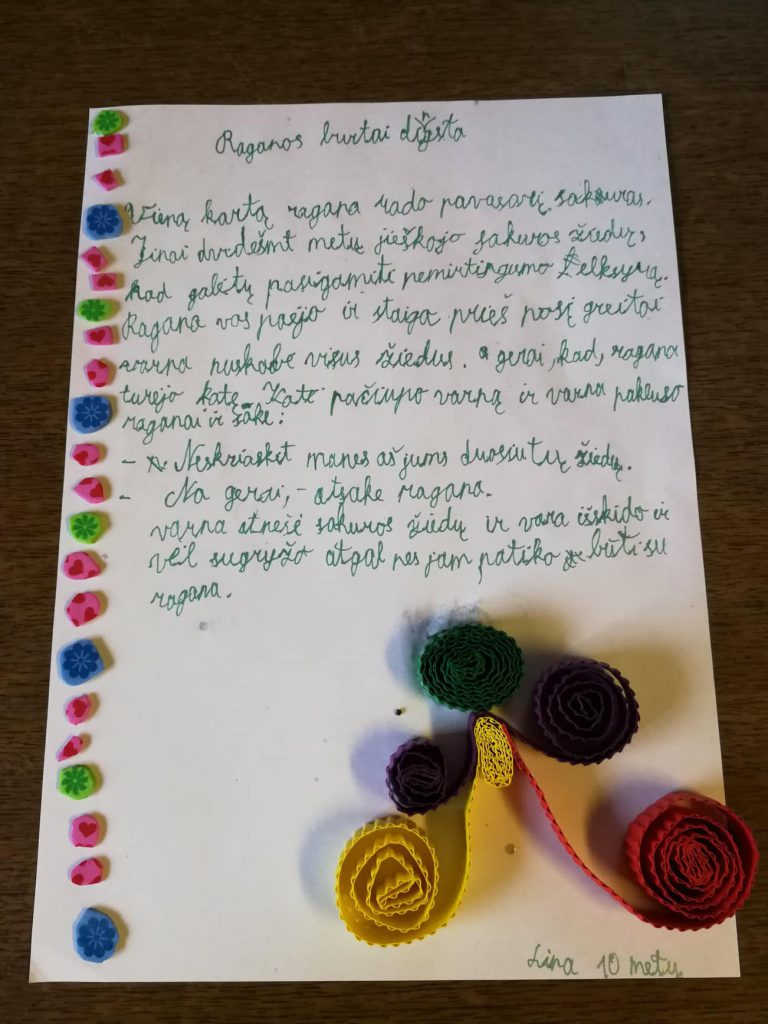 Raganos burtai dingsta
Vieną kartą ragana rado pavasarį sakuras.
Jinai dvrdešmt metų jieškojo sakuros žiedų,
kad galėtų pasigamiti nemirtingumo Eelksyrą.
Ragana vos paėjo ir staiga prieš nosį greitai
varna nuskabė visus žiedus. o gerai, kad, ragana
turėjo katę. Katė pačiupo varną ir varna pakluso
raganai ir sakė:
- Neskriasket manes aš jums duosiu tų žiedų.
- Na gerai, - atsakė ragana.
varna atnešė sakuros žiedų ir vara išskido ir
vėl sugryžo atgal nes jam patiko būti su
ragana.
Lina 10 metų